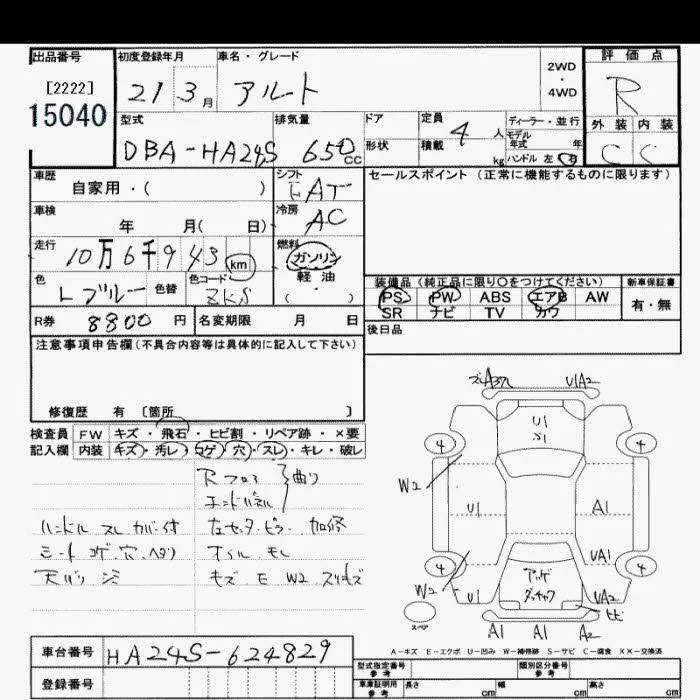 出品番号 初度登録年月 車名・グレード 2WD・4WD 評価点
[2222] 15040 21 3月 アルト R
型式 排気量 ドア 定員 ディーラー・並行 外装 内装
DBA-HA24S 650cc 形状 積載 4人 kg モデル年式 年 ハンドル 左 右 C C
車歴 シフト セールスポイント (正常に機能するものに限ります)
自家用・( ) FAT
車検 冷房
年 月( 日) AC
走行 燃料
10万6千943 km ガソリン
色 色替 色コード 軽油 装備品 (純正品に限り〇をつけてください) 新車保証書
Lブルー ZKS ・( ) PS PW ABS エアB AW 有・無
SR ナビ TV カワ
R券 8800円 名変期限 月 日 後日品
注意事項申告欄(不具合内容等は具体的に記入して下さい)
修復歴 有 〔箇所 〕
検査員 FW キズ・飛石・ヒビ割・リペア跡・×要
記入欄 内装 キズ・汚レ・コゲ・穴・スレ・キレ・破レ
Rフロア 曲り
エンドパネル
ハンドル スレ カバー付 左センターピラー 加修
シート コゲ 穴 ヘタリ オイル モレ
天バリ キズ E W2 スリキズ
A3 U1A2
U1
S1
4 4
W2 U1 A1
UA1
4 4
W2 アッパ
U1 UA2
ヒビ
スペア A1 A1 A2
A-キズ E-エクボ U-凹み W-補修跡 S-サビ C-腐食 XX-交換済
車台番号 HA24S-624829
登録番号
型式指定番号 参考 類別区分番号 参考
車庫証明用 参考 長さ cm 幅 cm 高さ cm